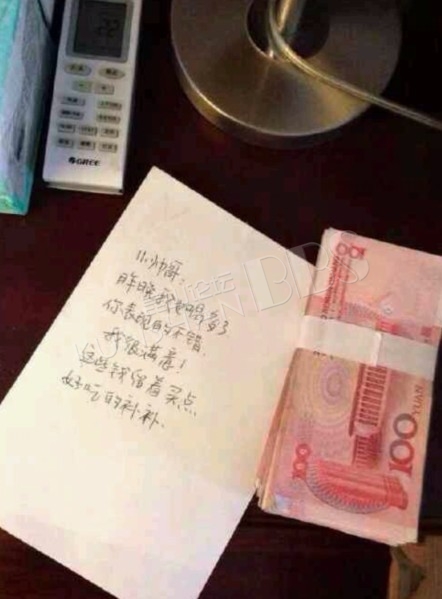 22
GREE
小帅哥:
昨晚我喝多了
你表现的不错,
我很满意!
这些钱留着买点
好吃的补补.
100
100 YUAN
100
BBS